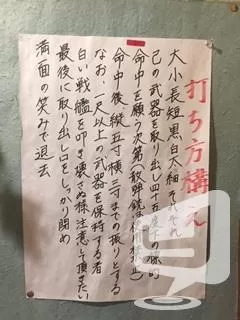 打ち方構え
大小長短黒白太細それぞれ
己の武器を取り出し四十五度の標的
命中を願う次第(軟弾銃は使用禁止)
命中後縦五寸横三寸までの振りとする
なお、一尺以上の武器を保持する者
白い戦艦を叩き壊さぬ様注意して頂きたい
最後に取り出し口をしっかり閉め
満面の笑みで退去